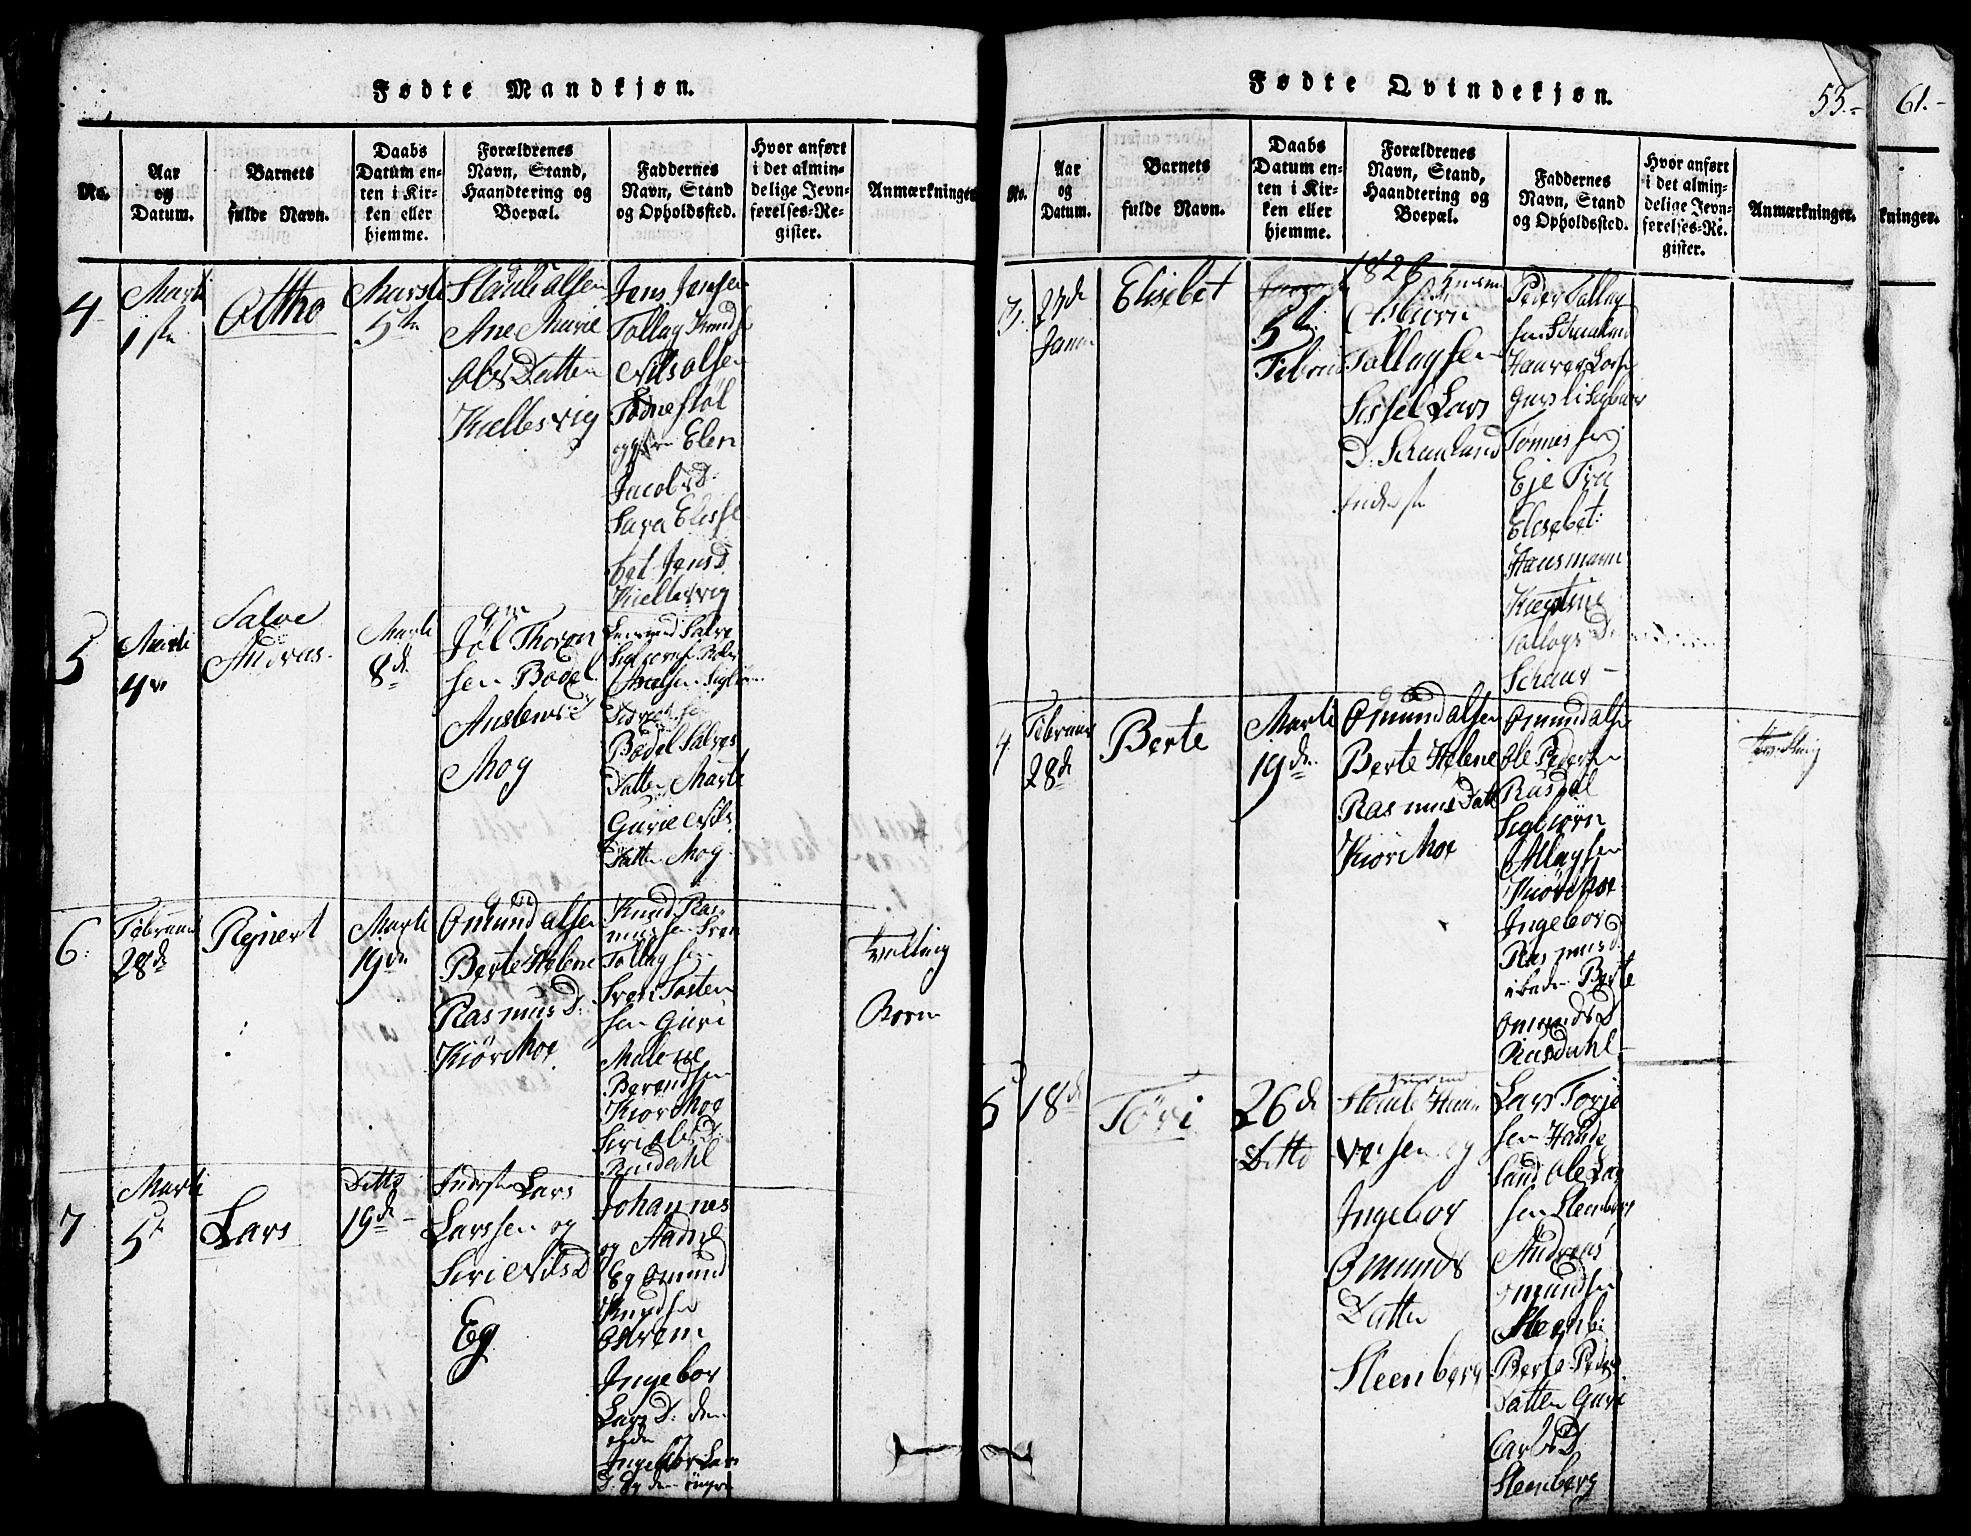 Fødte Mandkjøn.
No.
Aar
og
Datum.
Barnets
fulde Navn.
Daabs
Datum en-
ten i Kir-
ken eller
hjemme.
Forældrenes
Navn, Stand,
Haandtering og
Boepæl.
Faddernes
Navn, Stand
og Opholdssted.
Hvor anført
i det almin-
delige Jevn-
førelses-Re-
gister.
Anmærkninger
4
Marti
1ste
Ottho
Marsti
5te
Olsen
Ane Marie
Ols Datter
Kiellesvig
Jens Jensen
Tollag
Nils Olsen
Elen
Jacobs D:
Sara
bet Jens D
Kiellesvig
5
Marti
4de
Salve
Andras
Marti
8de
Gm
Joel Thoron
sen Bodel
Mog
Salve
Bodel Salves
Datter Marte
Gurie Nils
Datter Mog
6:
Februar
28de
Rejnert
Marti
19de
Omund Olsen
Berte Helene
Rasmus D:
Kiørmoe
Knud Ras
mussen Sven
Tollagsen
Sven Tosten
sen Guri
Malene
Berendsen
Kiormoe
Siri Ols D
Rusdahl
Tvilling
Born
7
Marti
5te
Lars
Ditto
19de
Inderster Lars
Larssen og
Siri Nils D
Eg
Johannes
og Aadne
Eg Omund
Knudsen
Ostrem
Ingebor
Lars D: den
eldre og
Ingebor Lars
D. Eg den yngre
Fødte Qvindekjøn.
53.-
61.-
No.
Aar
og
Datum.
Barnets
fulde Navn.
Daabs
Datum en-
ten i Kir-
ken eller
hjemme.
Forældrenes
Navn, Stand,
Haandtering og
Boepæl.
Faddernes
Navn, Stand
og Opholdssted.
Hvor anført
i det almin-
delige Jevn-
førelses-Re-
gister.
Anmærkninger.
kninger.
1826
3.
27de
Janu
Elisebet
5te
Februar
Asbiørn
Tollagsen
Sissel Lars
D. Skauland
Inderste
Peder Tollag
sen Skauland
Tønnesen
Eje Fru
Elisebet
Hansmann
Kirstine
Tallogs D.
Schaar
4
Februar
28de
Berte
Marti
19de
Omund Olsen
Berte Helene
Rasmus Datt
Kiørmoe
Omund Olsen
Ole Pedersen
Rusdal
Sigbiørn
Ollagsen
Kiørmoe
Ingebor
Rasmus D.
ibede Berte
Omunds D
Rusdahl
Tvilling
5
18de
Tøri
26de
Ditto
versen og
Ingebor
Omunds
Datter
Steenberg
Lars Torje
sen Haade
land Ole Lar
sen Steenberg
Andreas
Omundsen
Steenb:
Berte Peders
Datter Guri
Carls D
Steenberg